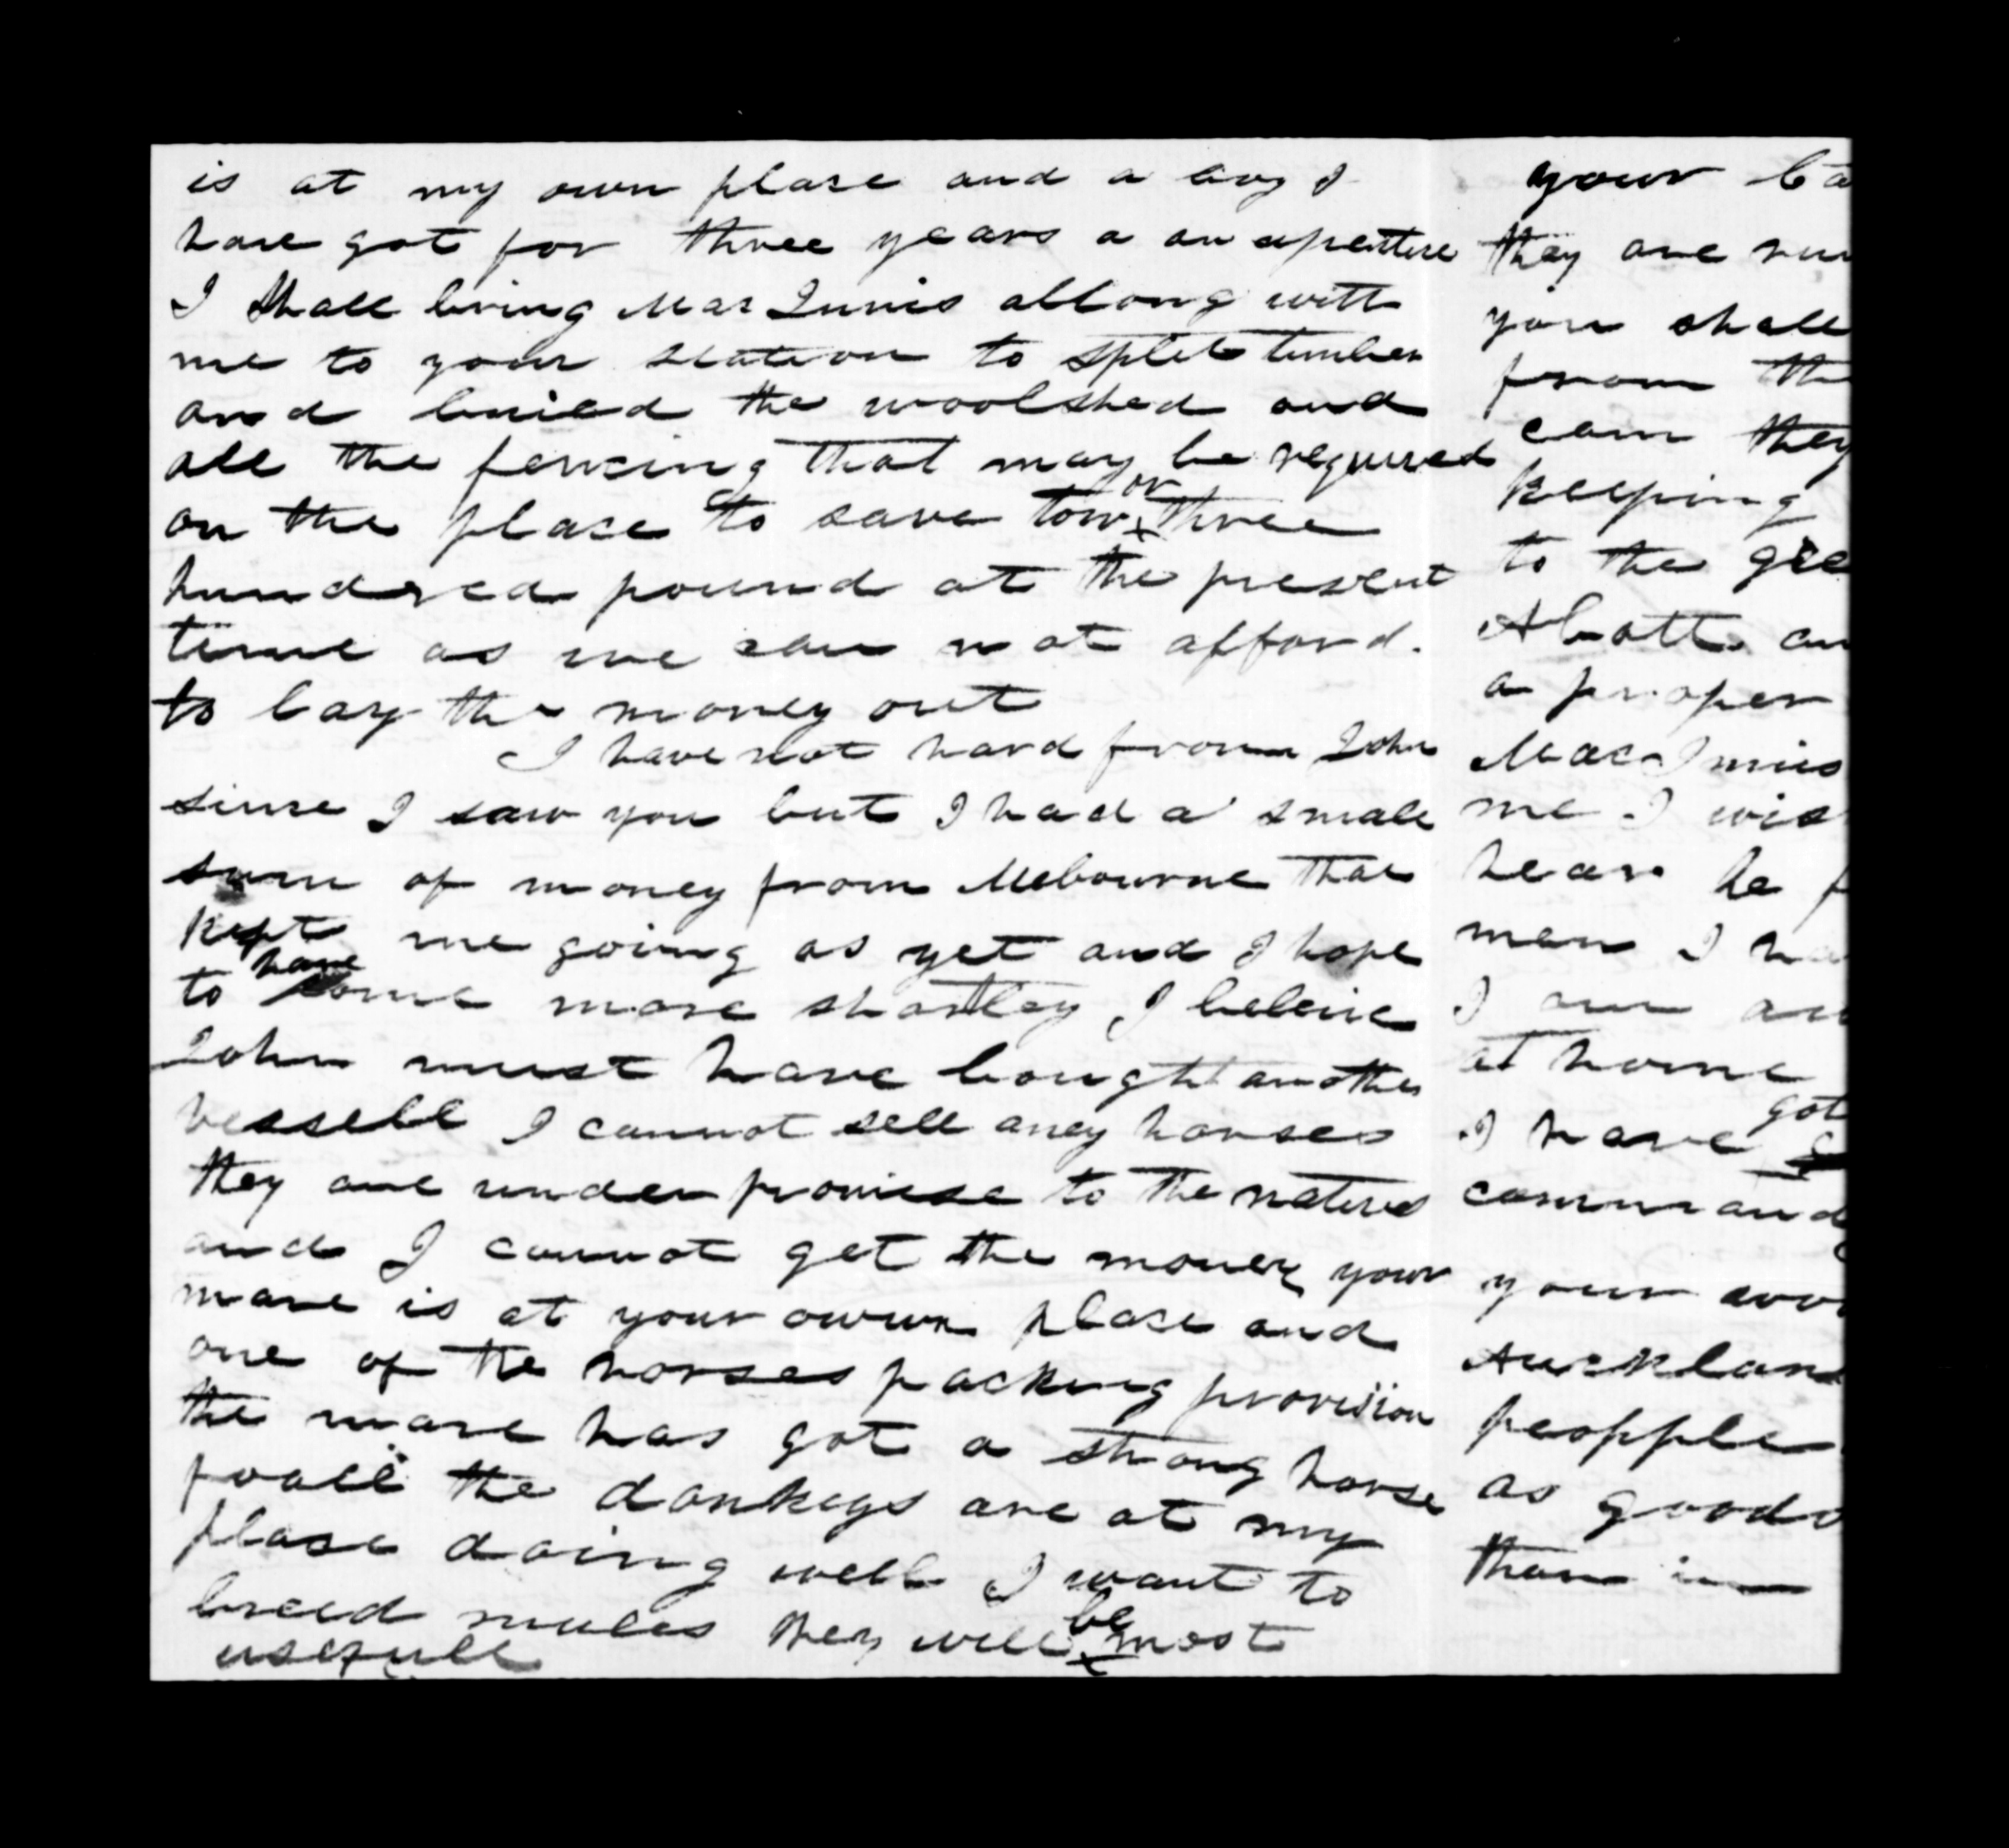 is at my own plase and a boy I
have got for three years a an apentture
I shall bring Mac Innis allong with
me to your station to split timber
and build the woolshed and
all the fencing that may be required
on the place to save tow or three
hundred pound at the present
time as we can not afford.
to lay the money out
I have not hard from John
since I saw you but I had a small
sum of money from Melbourne that
kept me going as yet and I hope
to have some more shortley I beleive
John must have bought another
vessell I cannot sell aney horses
they are under promise to the natives
and I cannot get the money your
mare is at your owwn place and
one of the horses packing provision
the mare has got a strong horse
foall the donkeys are at my
plase doing well I want to
breed mules they will be most
usefull
your
they are
you shall
from
can they
keeping
to the
Abott
a proper
Mac Innis
me I
hear he
man I
I am
at home
I have got
command
your
Auckland
peopple
as good
than in